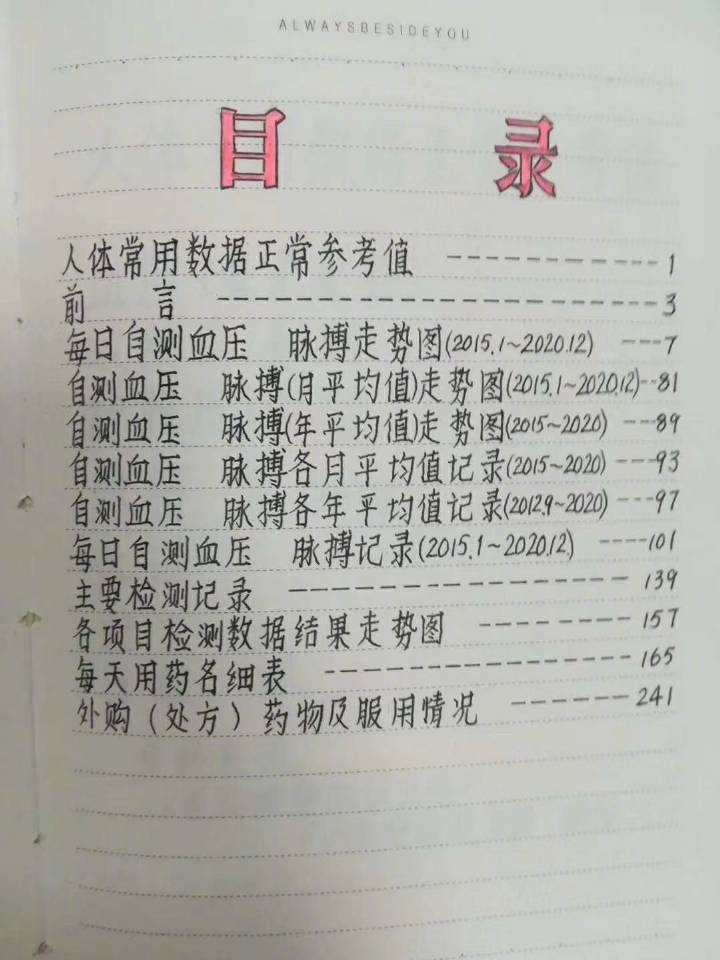 ALWAYSBESIDEYOU
目 录
人体常用数据正常参考值 ----------- 1
前 言 ----------------------- 3
每日自测血压 脉搏走势图(2015.1~2020.12) --- 7
自测血压 脉搏(月平均值)走势图(2015.1~2020.12)--81
自测血压 脉搏(年平均值)走势图(2015~2020) ---89
自测血压 脉搏各月平均值记录(2015~2020) ---93
自测血压 脉搏各年平均值记录(2012.9~2020)---97
每日自测血压 脉搏记录(2015.1~2020.12) ----101
主要检测记录 ----------------- 139
各项目检测数据结果走势图 -------- 157
每天用药名细表 ---------------165
外购（处方）药物及服用情况 ------241